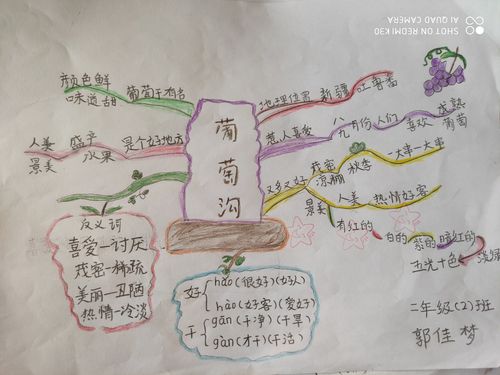 SHOT ON REDMI K30
AI QUAD CAMERA
葡萄沟
颜色鲜
味道甜
葡萄干
人美
景美
盛产
水果
是个好地方
地理位置
新疆
吐鲁番
惹人喜爱
八
九月份
人们
喜欢
成熟
葡萄
又多又好
茂密
凉棚
秋季
一大串一大串
景美
人美
热情好客
有红的
白的
紫的
暗红的
五光十色
反义词
喜爱—讨厌
茂密—稀疏
美丽—丑陋
热情—冷淡
好
hǎo(很好)(好人)
hào(好客)(爱好)
干
gān(干净)(干旱)
gàn(才干)(干活)
二年级(2)班
郭佳梦